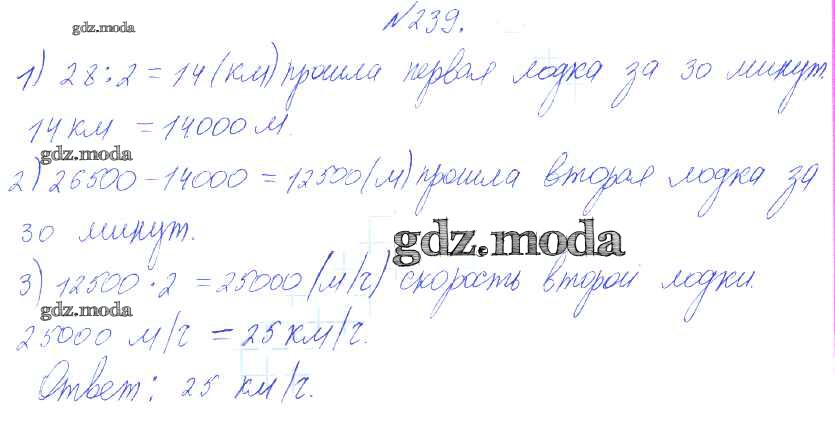 №239.
gdz.moda
1) 28:2=14(км) прошла первая лодка за 30 минут.
14 км = 14000 м.
gdz.moda
2) 26500-14000=12500(м) прошла вторая лодка за
30 минут.
gdz.moda
3) 12500·2=25000(м/г) скорость второй лодки.
gdz.moda
25000 м/г = 25 км/г.
Ответ: 25 км/г.